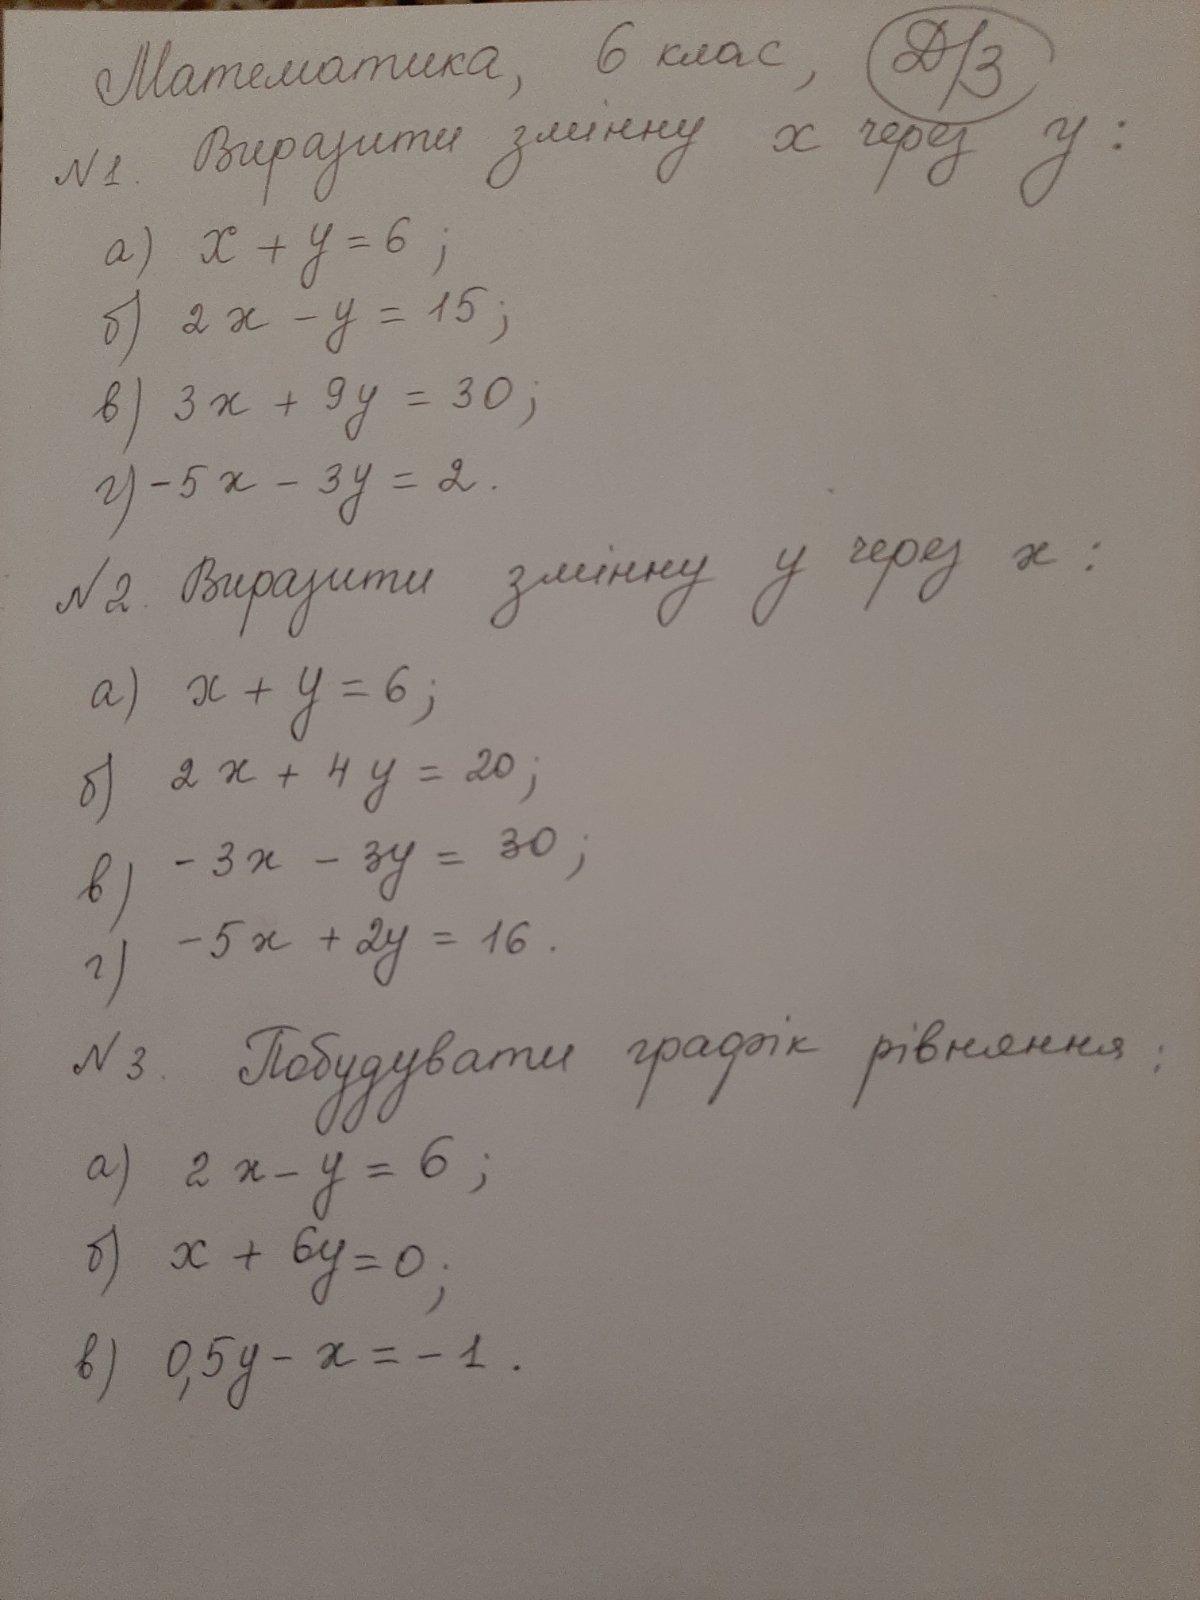 Математика, 6 клас, Д/З
№1. Виразити змінну x через y:
а) x + y = 6;
б) 2x - y = 15;
в) 3x + 9y = 30;
г) -5x - 3y = 2.
№2. Виразити змінну y через x:
а) x + y = 6;
б) 2x + 4y = 20;
в) -3x - 3y = 30;
г) -5x + 2y = 16.
№3. Побудувати графік рівняння:
а) 2x - y = 6;
б) x + 6y = 0;
в) 0,5y - x = -1.